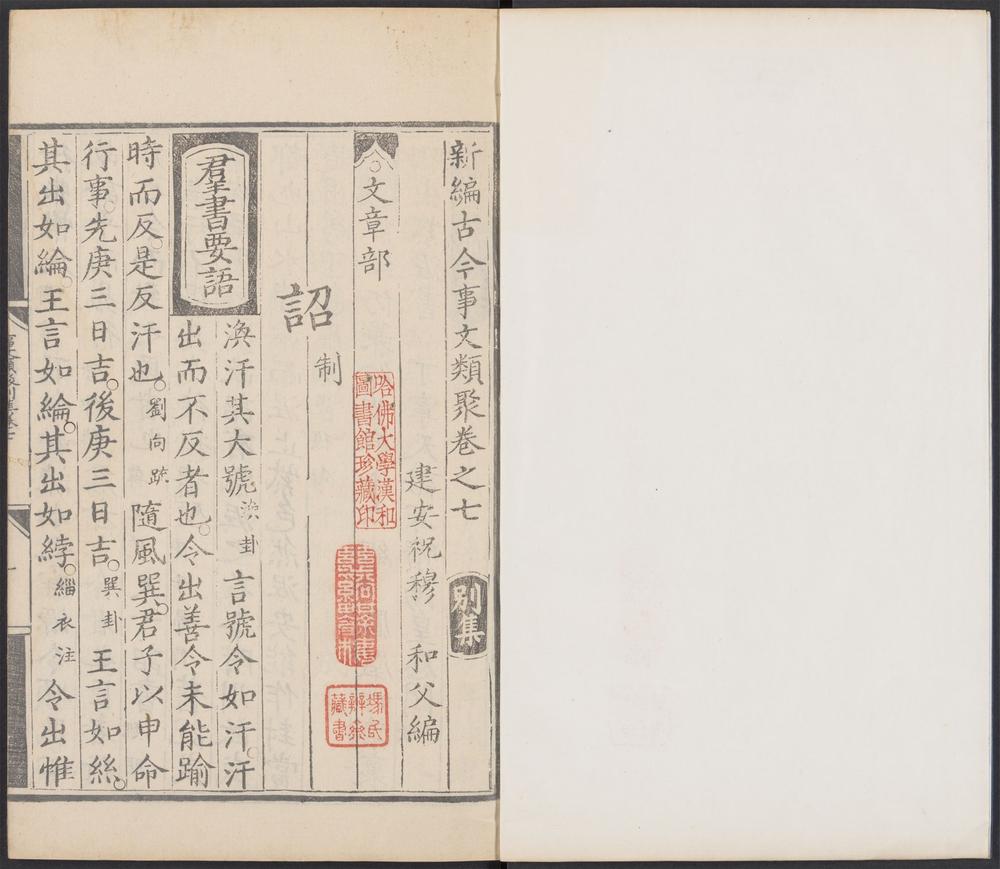 新編古今事文類聚卷之七 別集
建安祝穆 和父編
文章部
詔
制
羣書要語
渙汗其大號渙卦言號令如汗汗
出而不反者也令出善令未能踰
時而反是反汗也劉向疏隨風巽君子以申命
行事先庚三日吉後庚三日吉巽卦王言如絲
其出如綸王言如綸其出如綍緇衣注令出惟
哈佛大學漢和
圖書館珍藏印